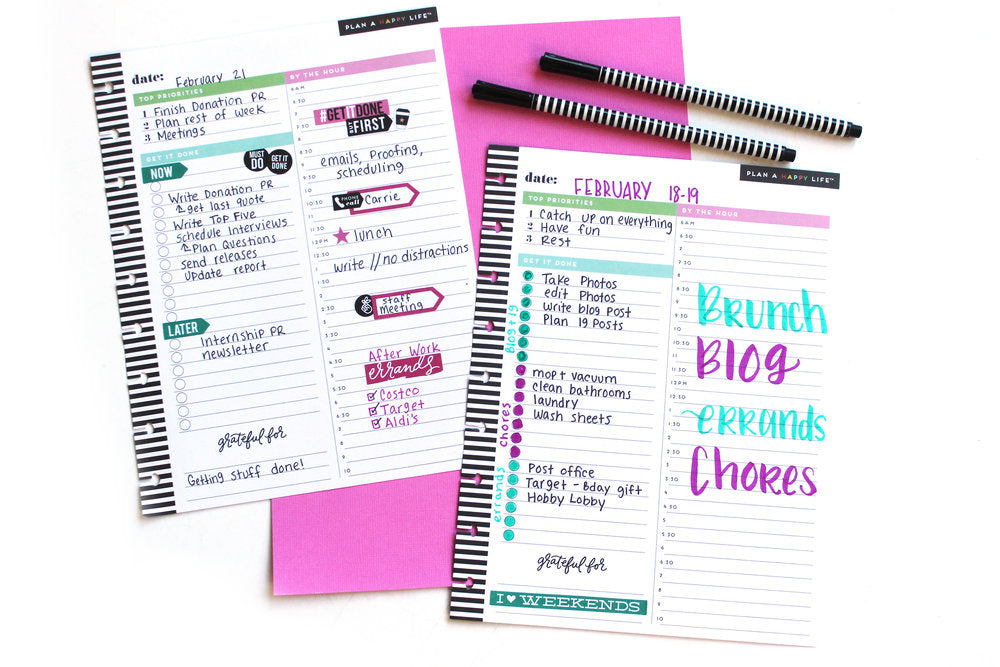 PLAN A HAPPY LIFE™
date: February 21
TOP PRIORITIES
1 Finish Donation PR
2 Plan rest of week
3 Meetings
GET IT DONE
MUST DO
GET IT DONE
NOW
Write Donation PR
get last quote
Write Top Five
schedule Interviews
Plan Questions
send releases
update report
LATER
Internship PR
newsletter
grateful for
Getting stuff done!
BY THE HOUR
6 AM
6:30
7
7:30
#GET IT DONE
FIRST
emails, Proofing,
scheduling
PHONE call
Carrie
12PM
lunch
write // no distractions
staff
meeting
After Work
errands
Costco
Target
Aldi's
10
PLAN A HAPPY LIFE™
date: FEBRUARY 18-19
TOP PRIORITIES
1 Catch up on everything
2 Have fun
3 Rest
GET IT DONE
Blog + 19
Take Photos
edit Photos
write blog post
Plan 19 Posts
Chores
mop + vacuum
clean bathrooms
laundry
Wash sheets
errands
Post office
Target - Bday gift
Hobby Lobby
grateful for
I ♥ WEEKENDS
BY THE HOUR
6 AM
6:30
7
7:30
8
8:30
9
9:30
10
10:30
11
11:30
12PM
Brunch
Blog
errands
Chores